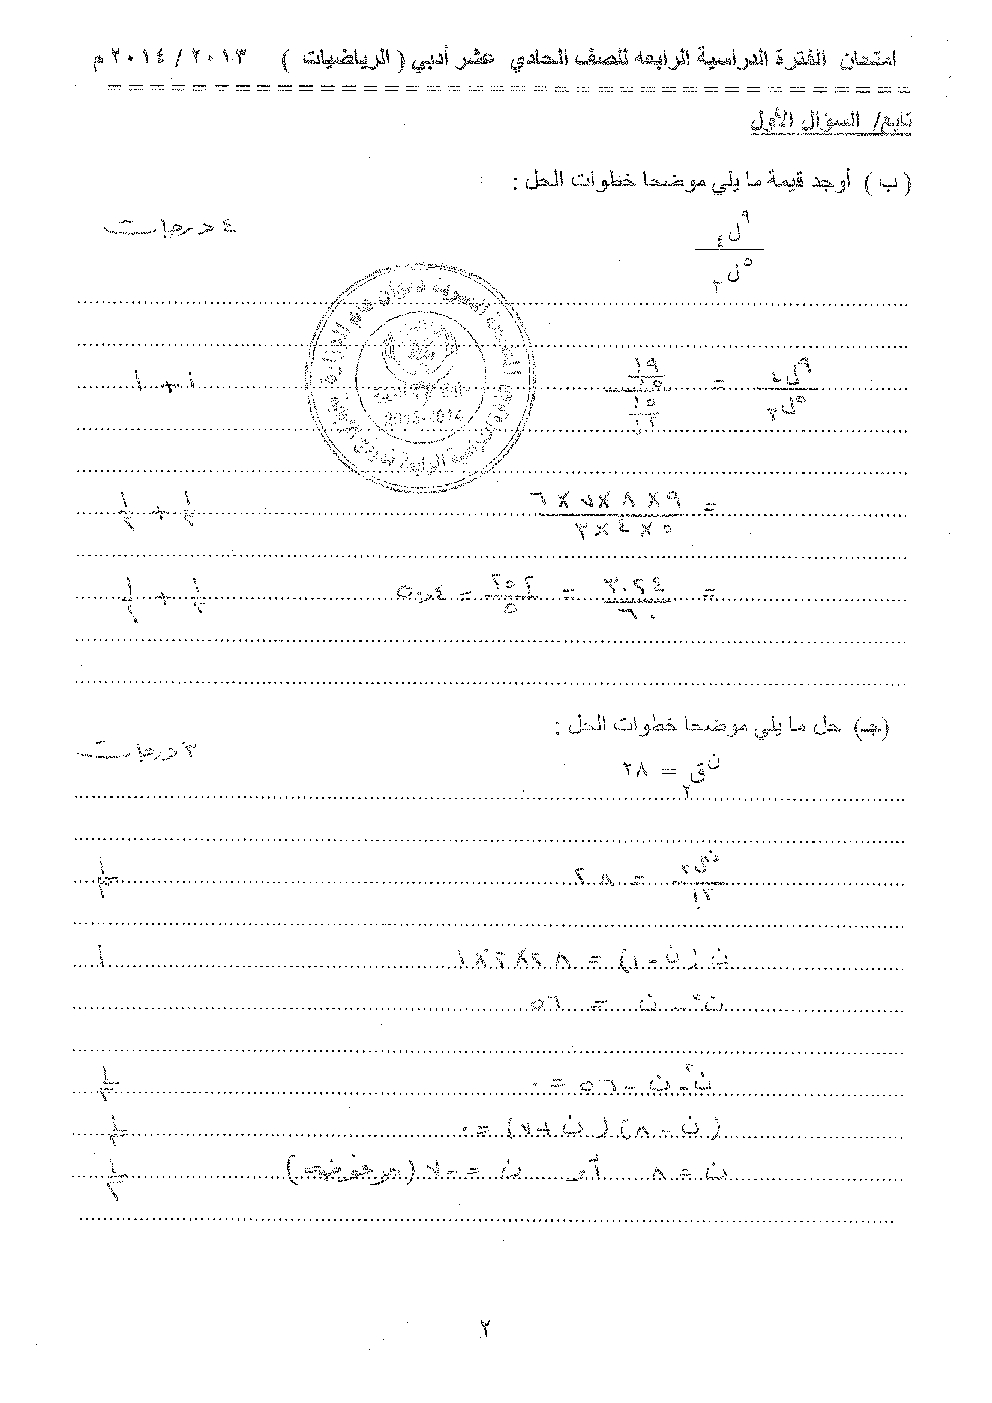 امتحان الفترة الدراسية الرابعه للصف الحادي عشر أدبي ( الرياضيات ) ٢٠١٣ / ٢٠١٤ م
تابع/ السؤال الأول
( ب ) أوجد قيمة ما يلي موضحا خطوات الحل :
٤ درجات
٩ل٤
٥ل٣
٩ل٤ / ٥ل٣ = ١٩ / ١٥ / ١٥ / ١٢ ١ + ١
= ٩ × ٨ × ٧ × ٦ / ٥ × ٤ × ٣ ١/٢ + ١/٢
= ٣٠٢٤ / ٦٠ = ٢٥٢ / ٥ = ٥٠,٤ ١/٢ + ١/٢
(جـ) حل ما يلي موضحا خطوات الحل :
٣ درجات
نق٢ = ٢٨
نل٢ / ٢! = ٢٨ ١/٢
ن (ن - ١) = ٢٨ × ٢ × ١ ١
ن٢ - ن = ٥٦
ن٢ - ن - ٥٦ = ٠ ١/٢
(ن - ٨) (ن + ٧) = ٠ ١/٢
ن = ٨ أو ن = -٧ (مرفوضة) ١/٢
٢